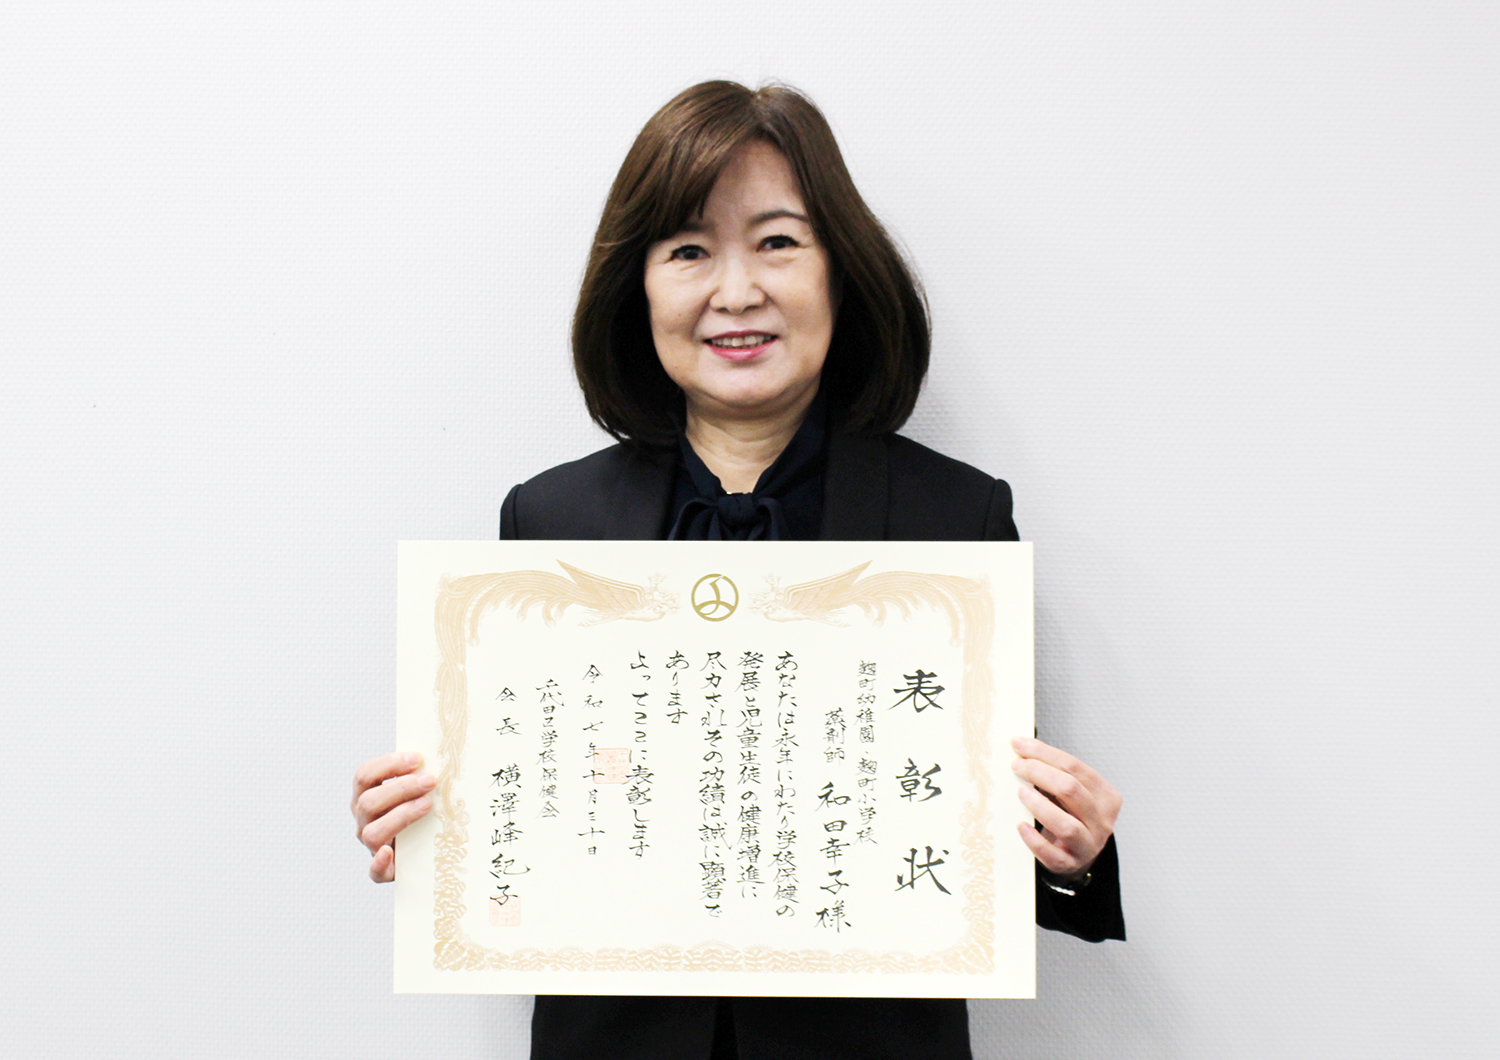 表彰状
麹町幼稚園・麹町小学校
薬剤師 和田幸子様
あなたは永年にわたり学校保健の
発展と児童生徒の健康増進に
尽力されその功績は誠に顕著で
あります
よってここに表彰します
令和七年十月三十日
千代田区学校保健会
会長 横澤峰紀子